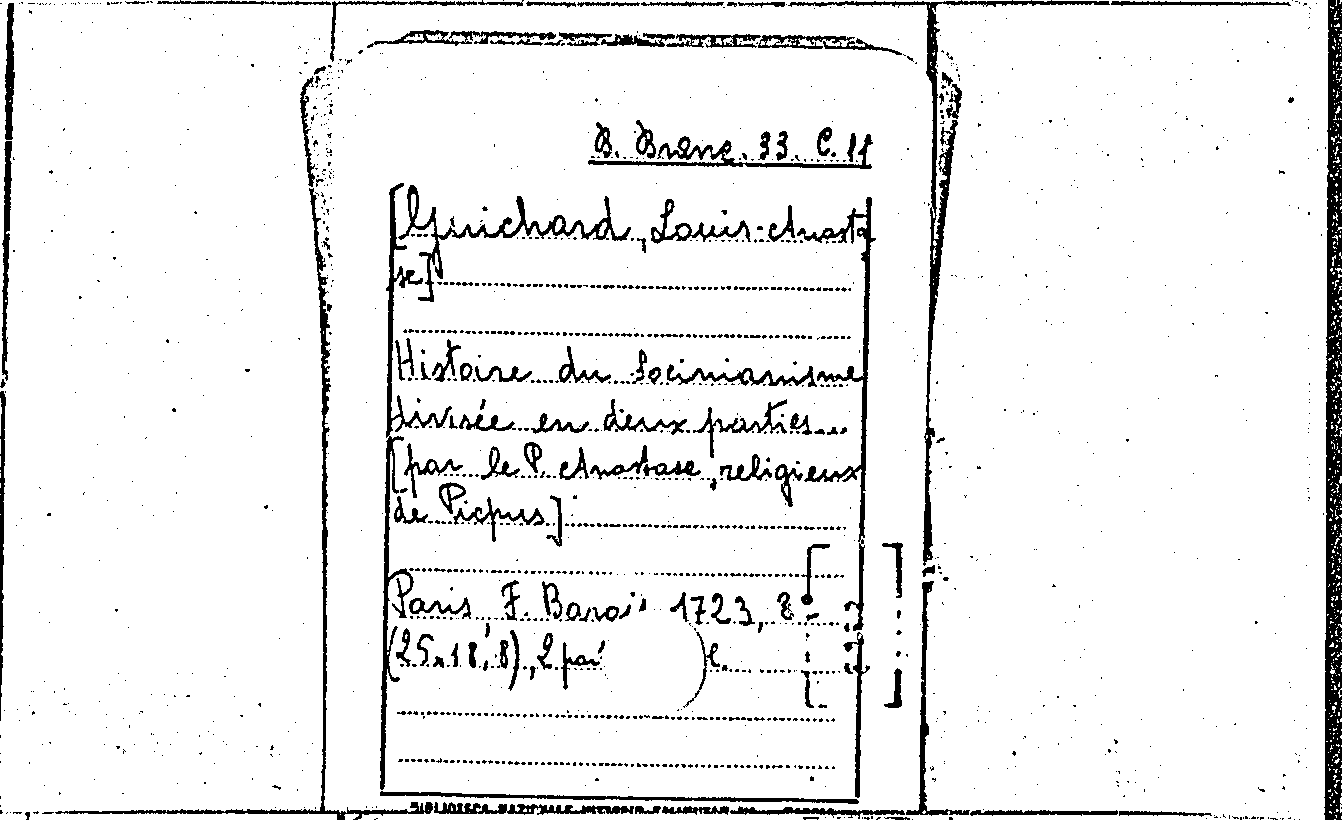 B. Branc. 33. C. 11
[Guichard, Louis-Anasta
se]
Histoire du Socinianisme
divisée en deux parties...
[par le P. Anastase, religieux
de Picpus]
Paris, F. Barois 1723, 8°
(25x18,8), 2 par
BIBLIOTECA NAZIONALE